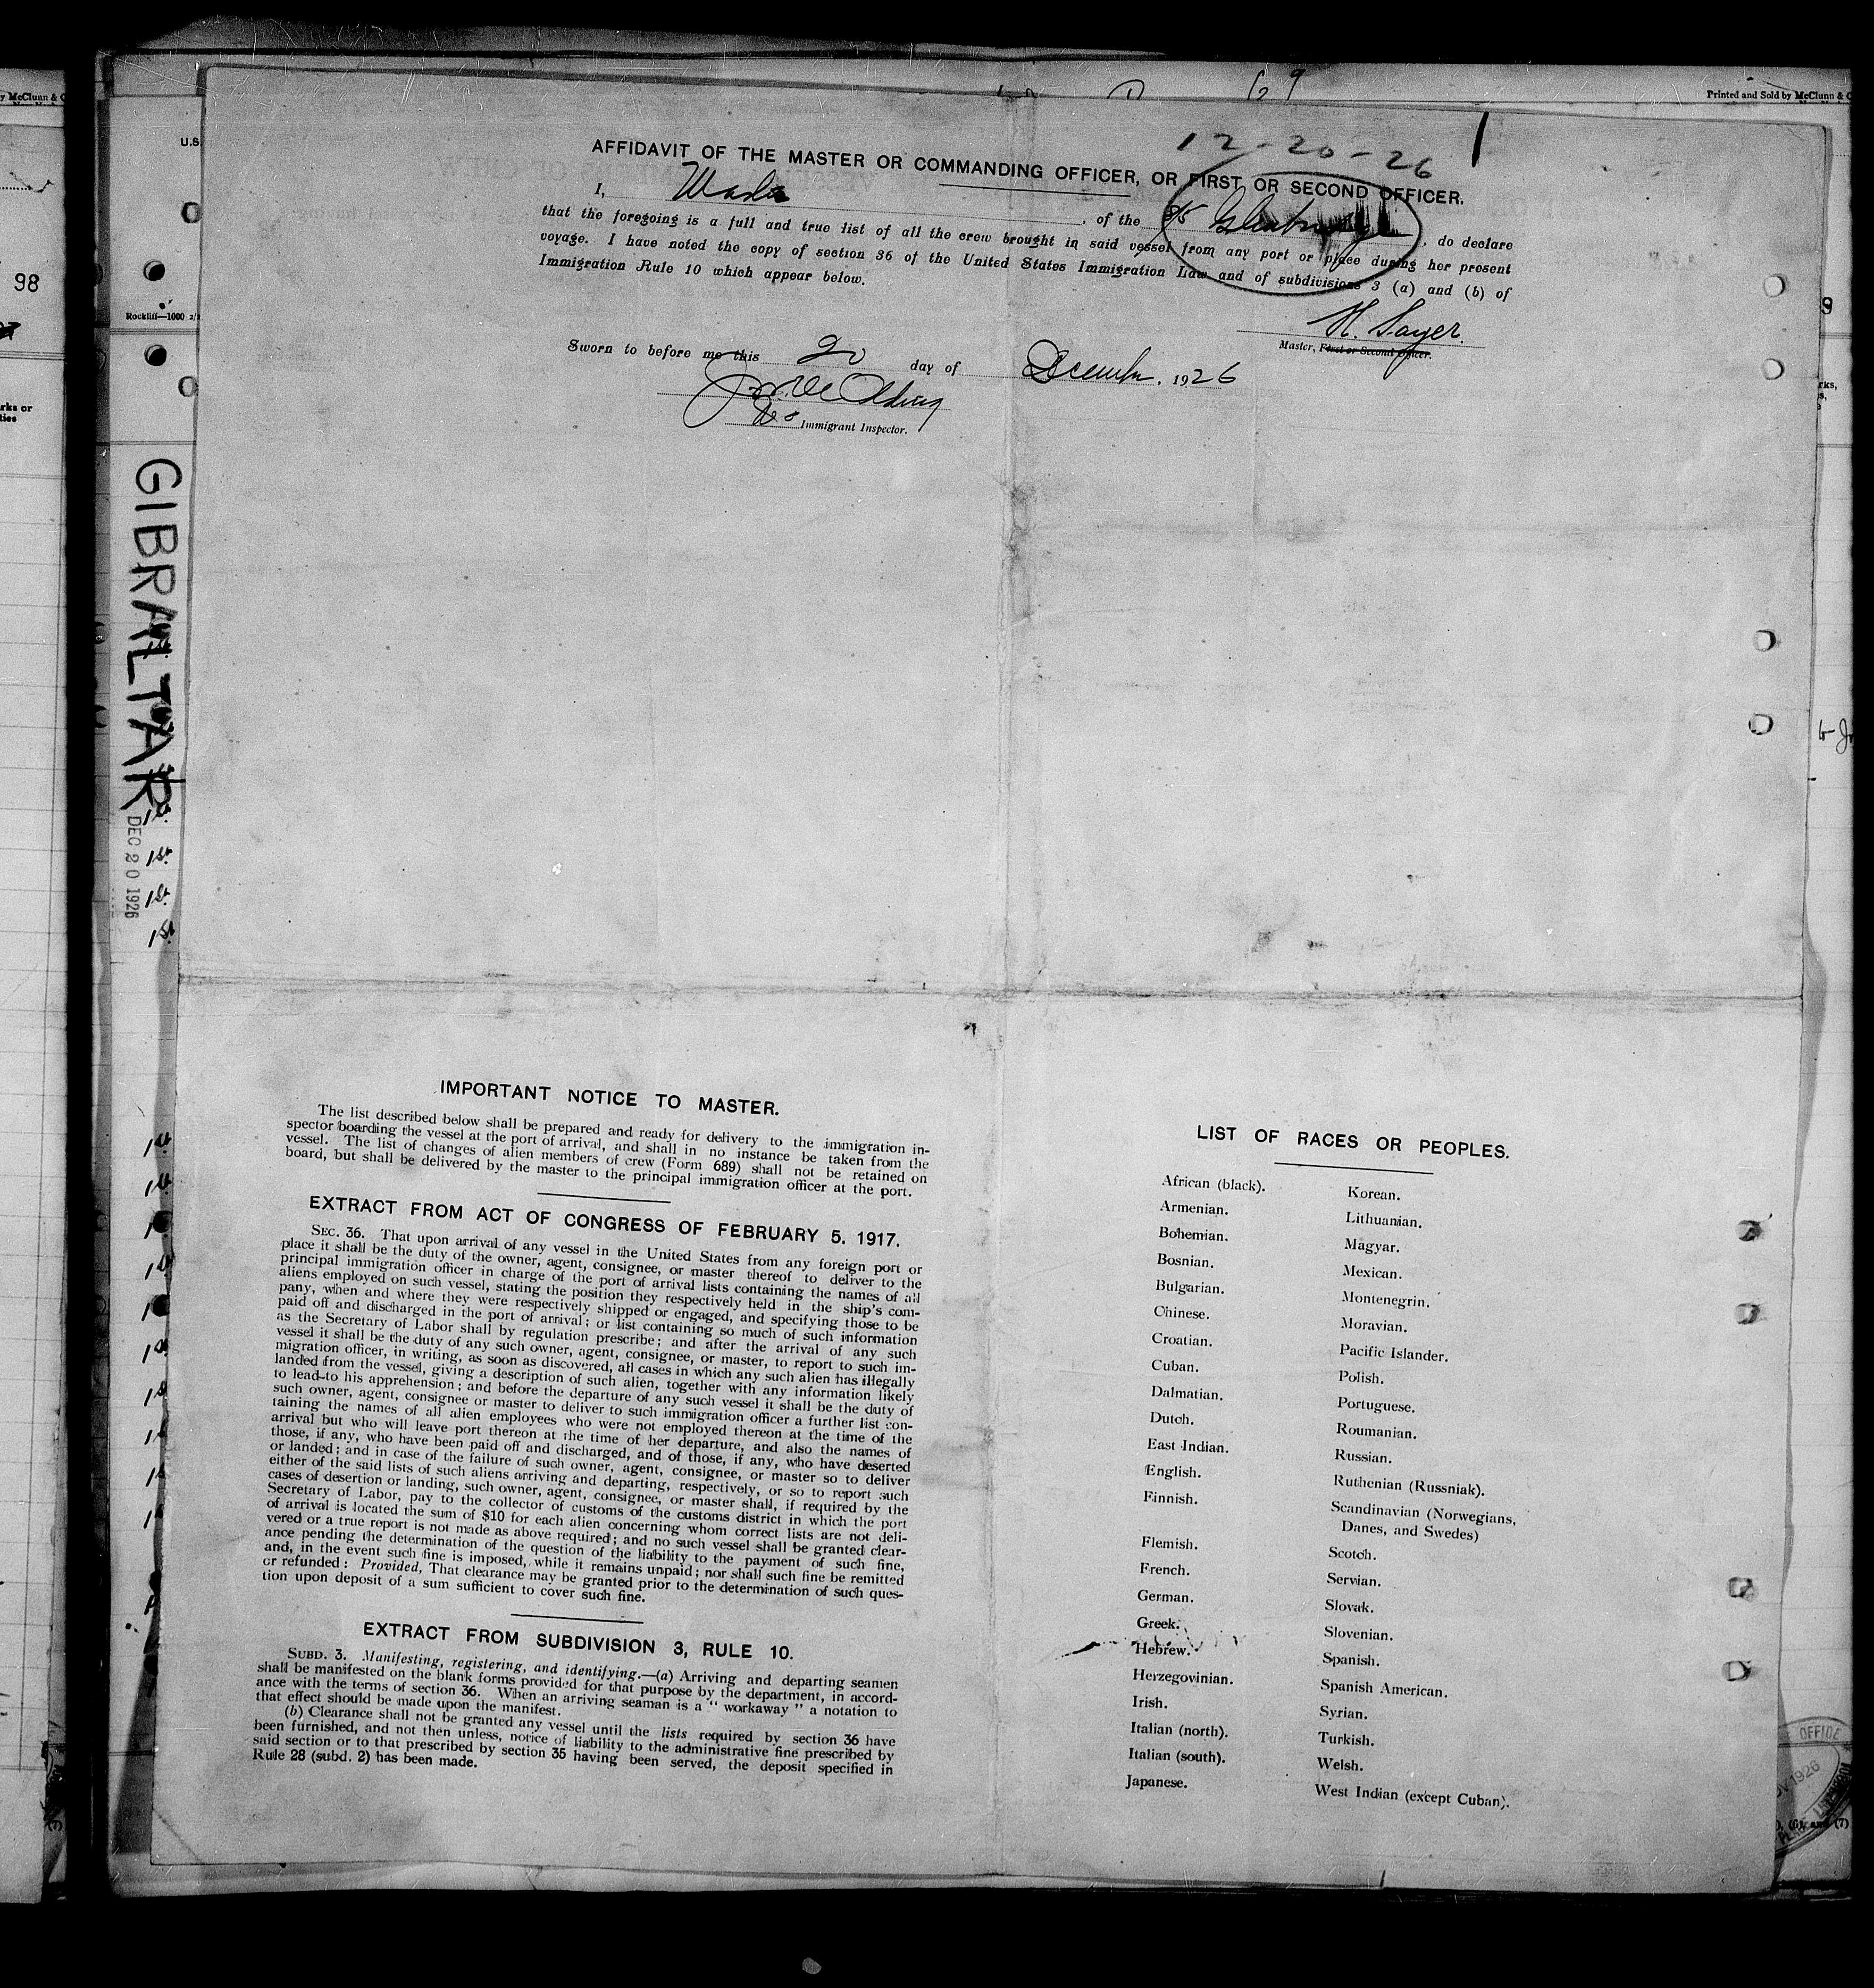 y McClunn & C
98
rks or
ties
U.S.
Rockliff—1000
GIBRALTAR
DEC 20 1926
Printed and Sold by McClunn & C
69
12-20-26
AFFIDAVIT OF THE MASTER OR COMMANDING OFFICER, OR FIRST OR SECOND OFFICER.
I, , of the S/S , do declare
that the foregoing is a full and true list of all the crew brought in said vessel from any port or place during her present
voyage. I have noted the copy of section 36 of the United States Immigration Law and of subdivisions 3 (a) and (b) of
Immigration Rule 10 which appear below.
H. Sayer.
Master, First or Second Officer.
Sworn to before me this 20 day of December, 1926
Immigrant Inspector.
IMPORTANT NOTICE TO MASTER.
The list described below shall be prepared and ready for delivery to the immigration in-
spector boarding the vessel at the port of arrival, and shall in no instance be taken from the
vessel. The list of changes of alien members of crew (Form 689) shall not be retained on
board, but shall be delivered by the master to the principal immigration officer at the port.
EXTRACT FROM ACT OF CONGRESS OF FEBRUARY 5, 1917.
SEC. 36. That upon arrival of any vessel in the United States from any foreign port or
place it shall be the duty of the owner, agent, consignee, or master thereof to deliver to the
principal immigration officer in charge of the port of arrival lists containing the names of all
aliens employed on such vessel, stating the position they respectively held in the ship's com-
pany, when and where they were respectively shipped or engaged, and specifying those to be
paid off and discharged in the port of arrival; or list containing so much of such information
as the Secretary of Labor shall by regulation prescribe; and after the arrival of any such
vessel it shall be the duty of any such owner, agent, consignee, or master, to report to such im-
migration officer, in writing, as soon as discovered, all cases in which any such alien has illegally
landed from the vessel, giving a description of such alien, together with any information likely
to lead to his apprehension; and before the departure of any such vessel it shall be the duty of
such owner, agent, consignee or master to deliver to such immigration officer a further list con-
taining the names of all alien employees who were not employed thereon at the time of the
arrival but who will leave port thereon at the time of her departure, and also the names of
those, if any, who have been paid off and discharged, and of those, if any, who have deserted
or landed; and in case of the failure of such owner, agent, consignee, or master so to deliver
either of the said lists of such aliens arriving and departing, respectively, or so to report such
cases of desertion or landing, such owner, agent, consignee, or master shall, if required by the
Secretary of Labor, pay to the collector of customs of the customs district in which the port
of arrival is located the sum of $10 for each alien concerning whom correct lists are not deli-
vered or a true report is not made as above required; and no such vessel shall be granted clear-
ance pending the determination of the question of the liability to the payment of such fine,
and, in the event such fine is imposed, while it remains unpaid; nor shall such fine be remitted
or refunded: Provided, That clearance may be granted prior to the determination of such ques-
tion upon deposit of a sum sufficient to cover such fine.
EXTRACT FROM SUBDIVISION 3, RULE 10.
SUBD. 3. Manifesting, registering, and identifying.—(a) Arriving and departing seamen
shall be manifested on the blank forms provided for that purpose by the department, in accord-
ance with the terms of section 36. When an arriving seaman is a " workaway " a notation to
that effect should be made upon the manifest.
(b) Clearance shall not be granted any vessel until the lists required by section 36 have
been furnished, and not then unless, notice of liability to the administrative fine prescribed by
said section or to that prescribed by section 35 having been served, the deposit specified in
Rule 28 (subd. 2) has been made.
LIST OF RACES OR PEOPLES.
African (black).
Armenian.
Bohemian.
Bosnian.
Bulgarian.
Chinese.
Croatian.
Cuban.
Dalmatian.
Dutch.
East Indian.
English.
Finnish.
Flemish.
French.
German.
Greek.
Hebrew.
Herzegovinian.
Irish.
Italian (north).
Italian (south).
Japanese.
Korean.
Lithuanian.
Magyar.
Mexican.
Montenegrin.
Moravian.
Pacific Islander.
Polish.
Portuguese.
Roumanian.
Russian.
Ruthenian (Russniak).
Scandinavian (Norwegians,
Danes, and Swedes)
Scotch.
Servian.
Slovak.
Slovenian.
Spanish.
Spanish American.
Syrian.
Turkish.
Welsh.
West Indian (except Cuban).
OFFICE
1926